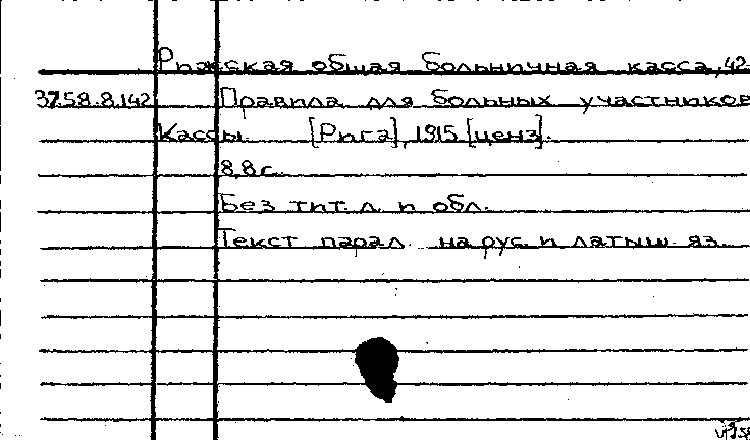 Рижская общая больничная касса, 42
37.58.8.142 Правила для больных участников
Кассы. [Рига], 1915 [ценз].
8,8 с.
Без тит. л. и обл.
Текст парал. на рус. и латыш. яз.